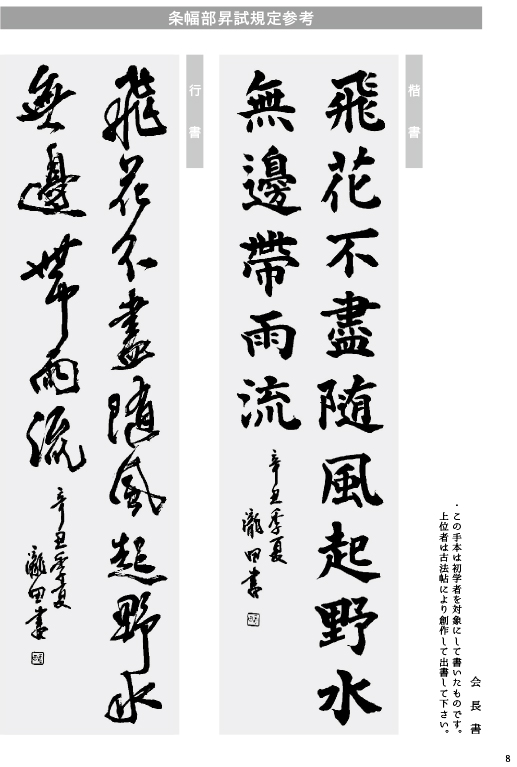 条幅部昇試規定参考
会長書
・この手本は初学者を対象にして書いたものです。
上位者は古法帖により創作して出書して下さい。
楷書
飛花不盡随風起野水
無邊帶雨流
辛丑季夏
瀧田書
行書
飛花不盡随風起野水
無邊帶雨流
辛丑季夏
瀧田書
8